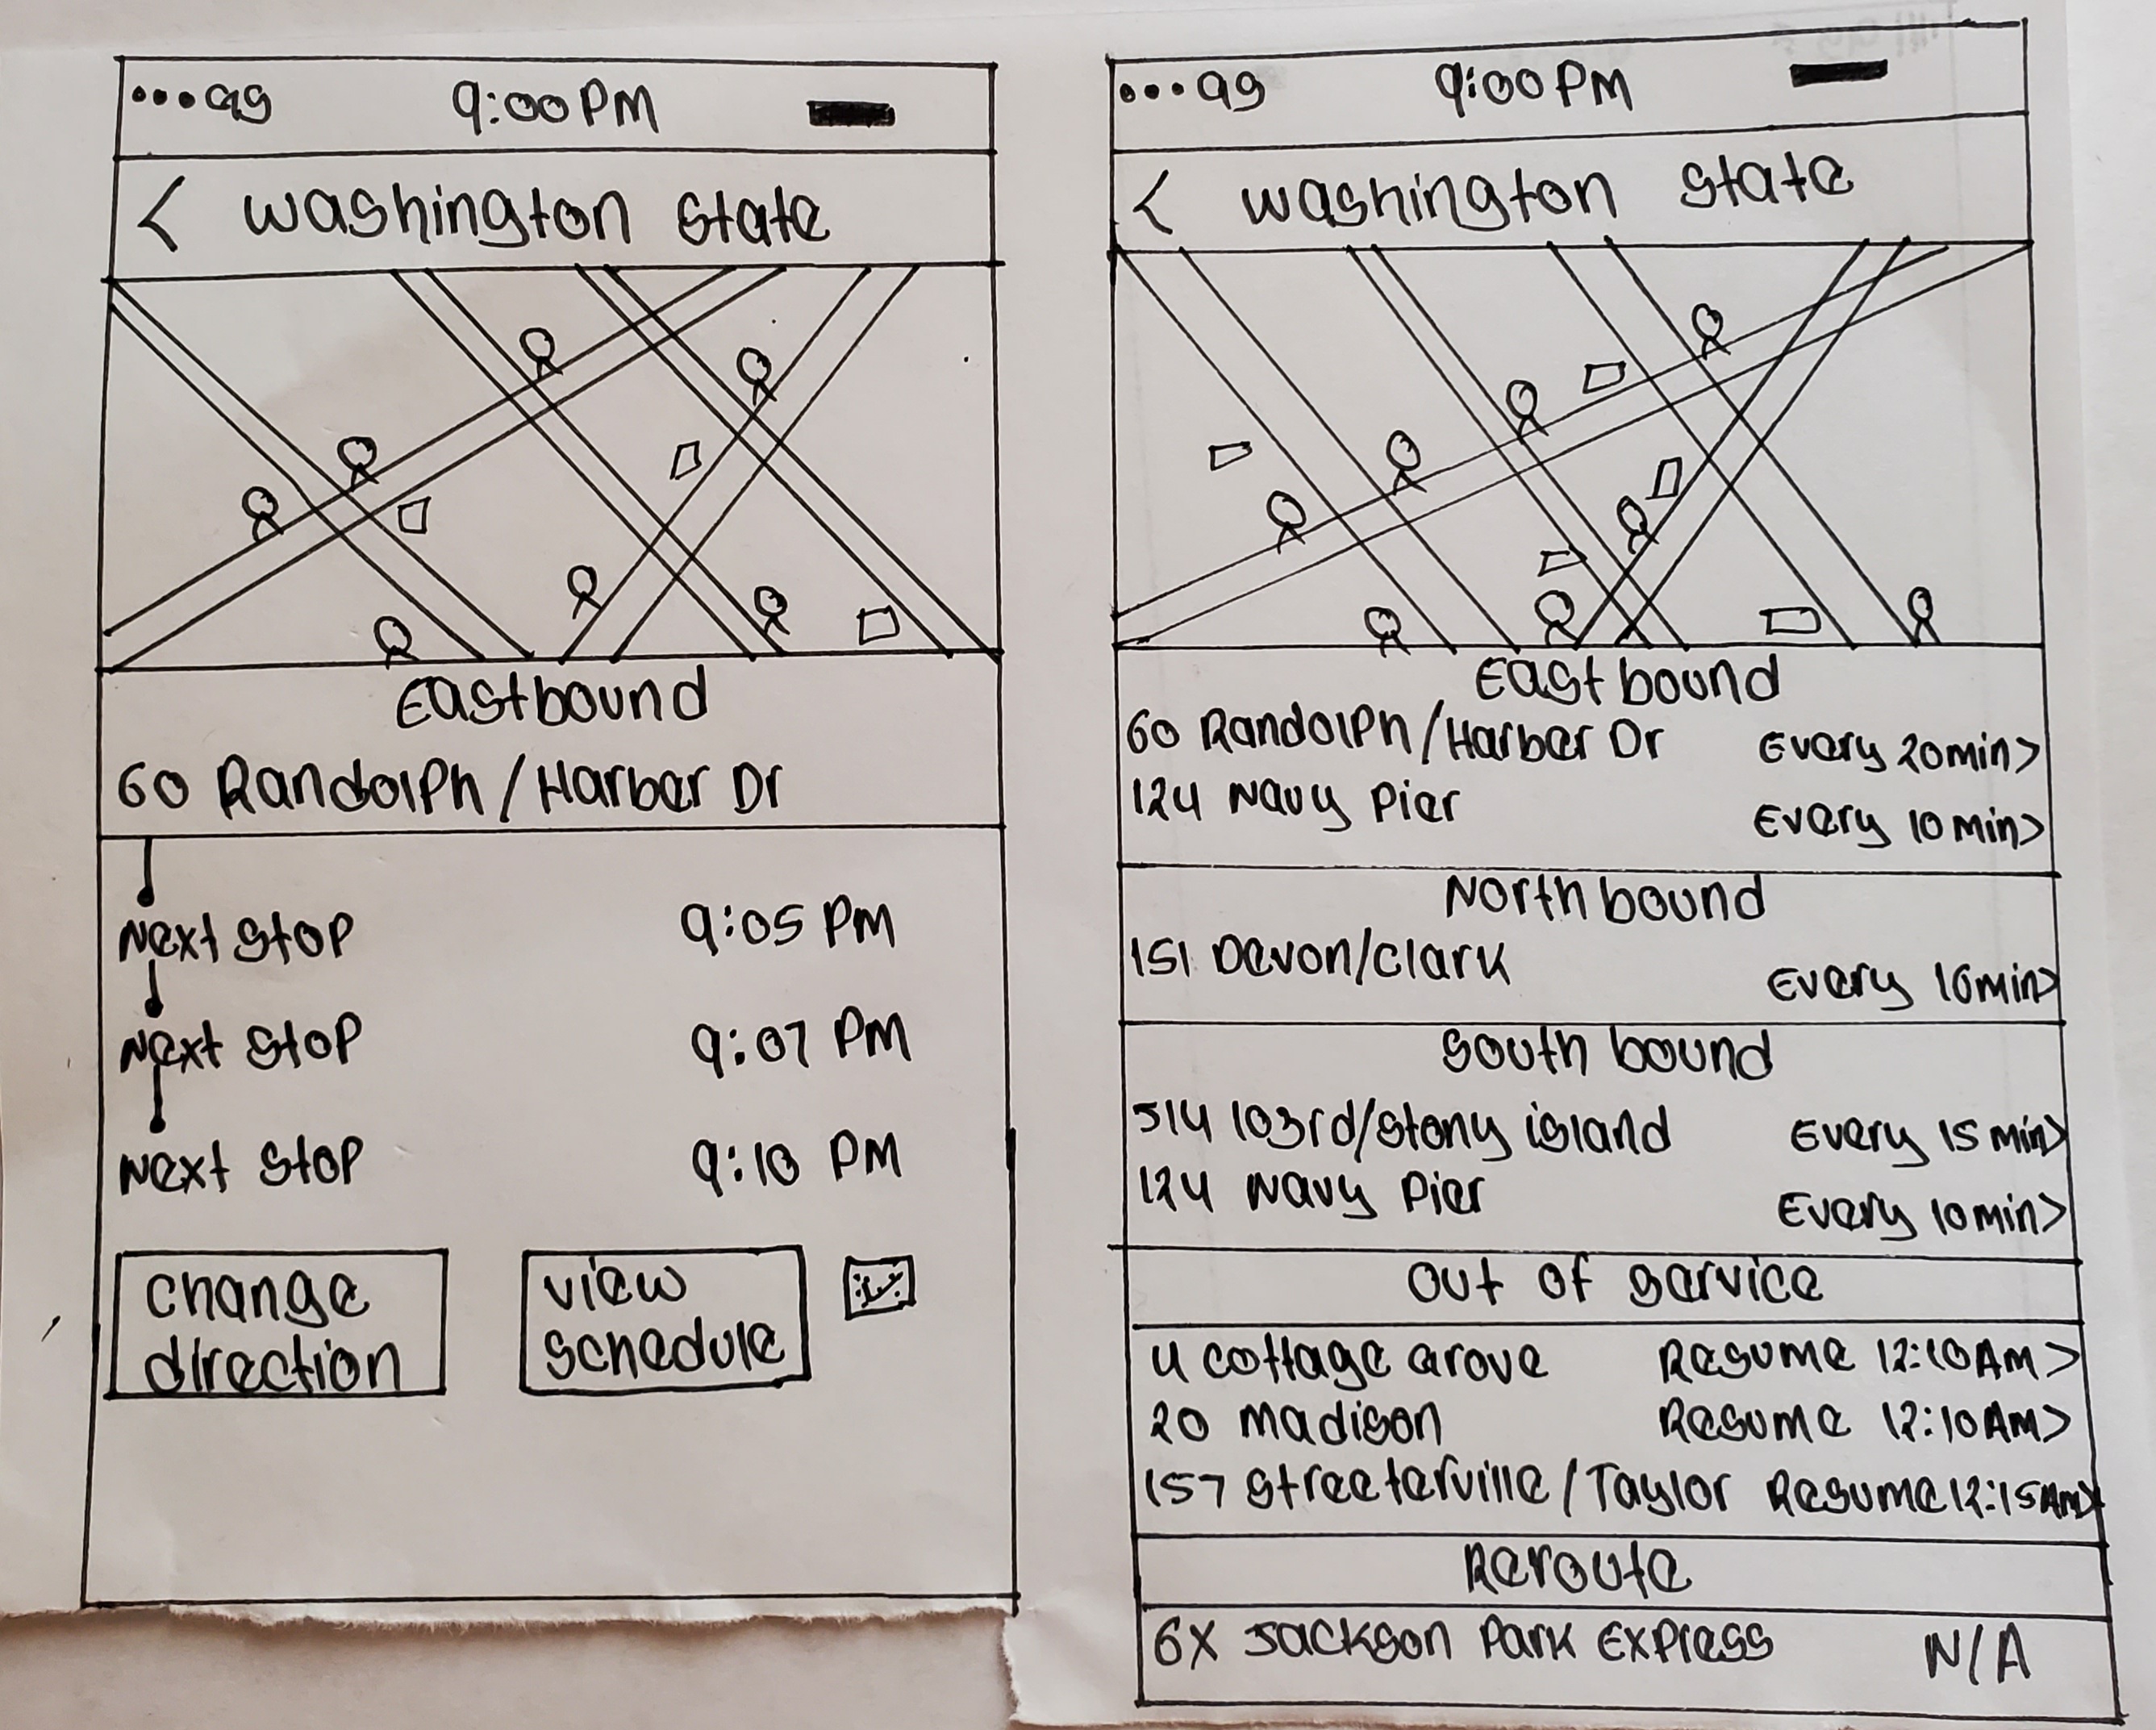 •••ag
9:00 PM
< Washington State
Eastbound
60 Randolph / Harber Dr
Next Stop 9:05 PM
Next Stop 9:07 PM
Next Stop 9:10 PM
Change
direction
View
Schedule
•••ag
9:00 PM
< Washington State
East bound
60 Randolph / Harber Dr Every 20 min >
124 Navy Pier Every 10 min >
North bound
151 Devon/Clark Every 10 min >
South bound
J14 103rd/Stony island Every 15 min >
124 Navy Pier Every 10 min >
Out of Service
4 Cottage Grove Resume 12:10 AM >
20 Madison Resume 12:10 AM >
157 Streeterville / Taylor Resume 12:15 AM >
Reroute
6X Jackson Park Express N/A